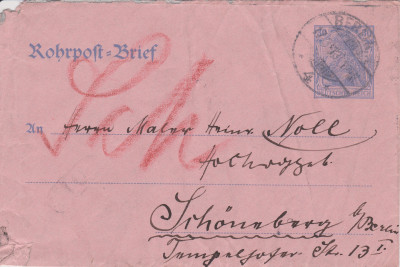 BERLIN
Rohrpost-Brief
Sch
An Herrn Maler Heinr. Noll
Hochwohlgeb.
Schöneberg b/Berlin
Tempelhofer Str. 13 I